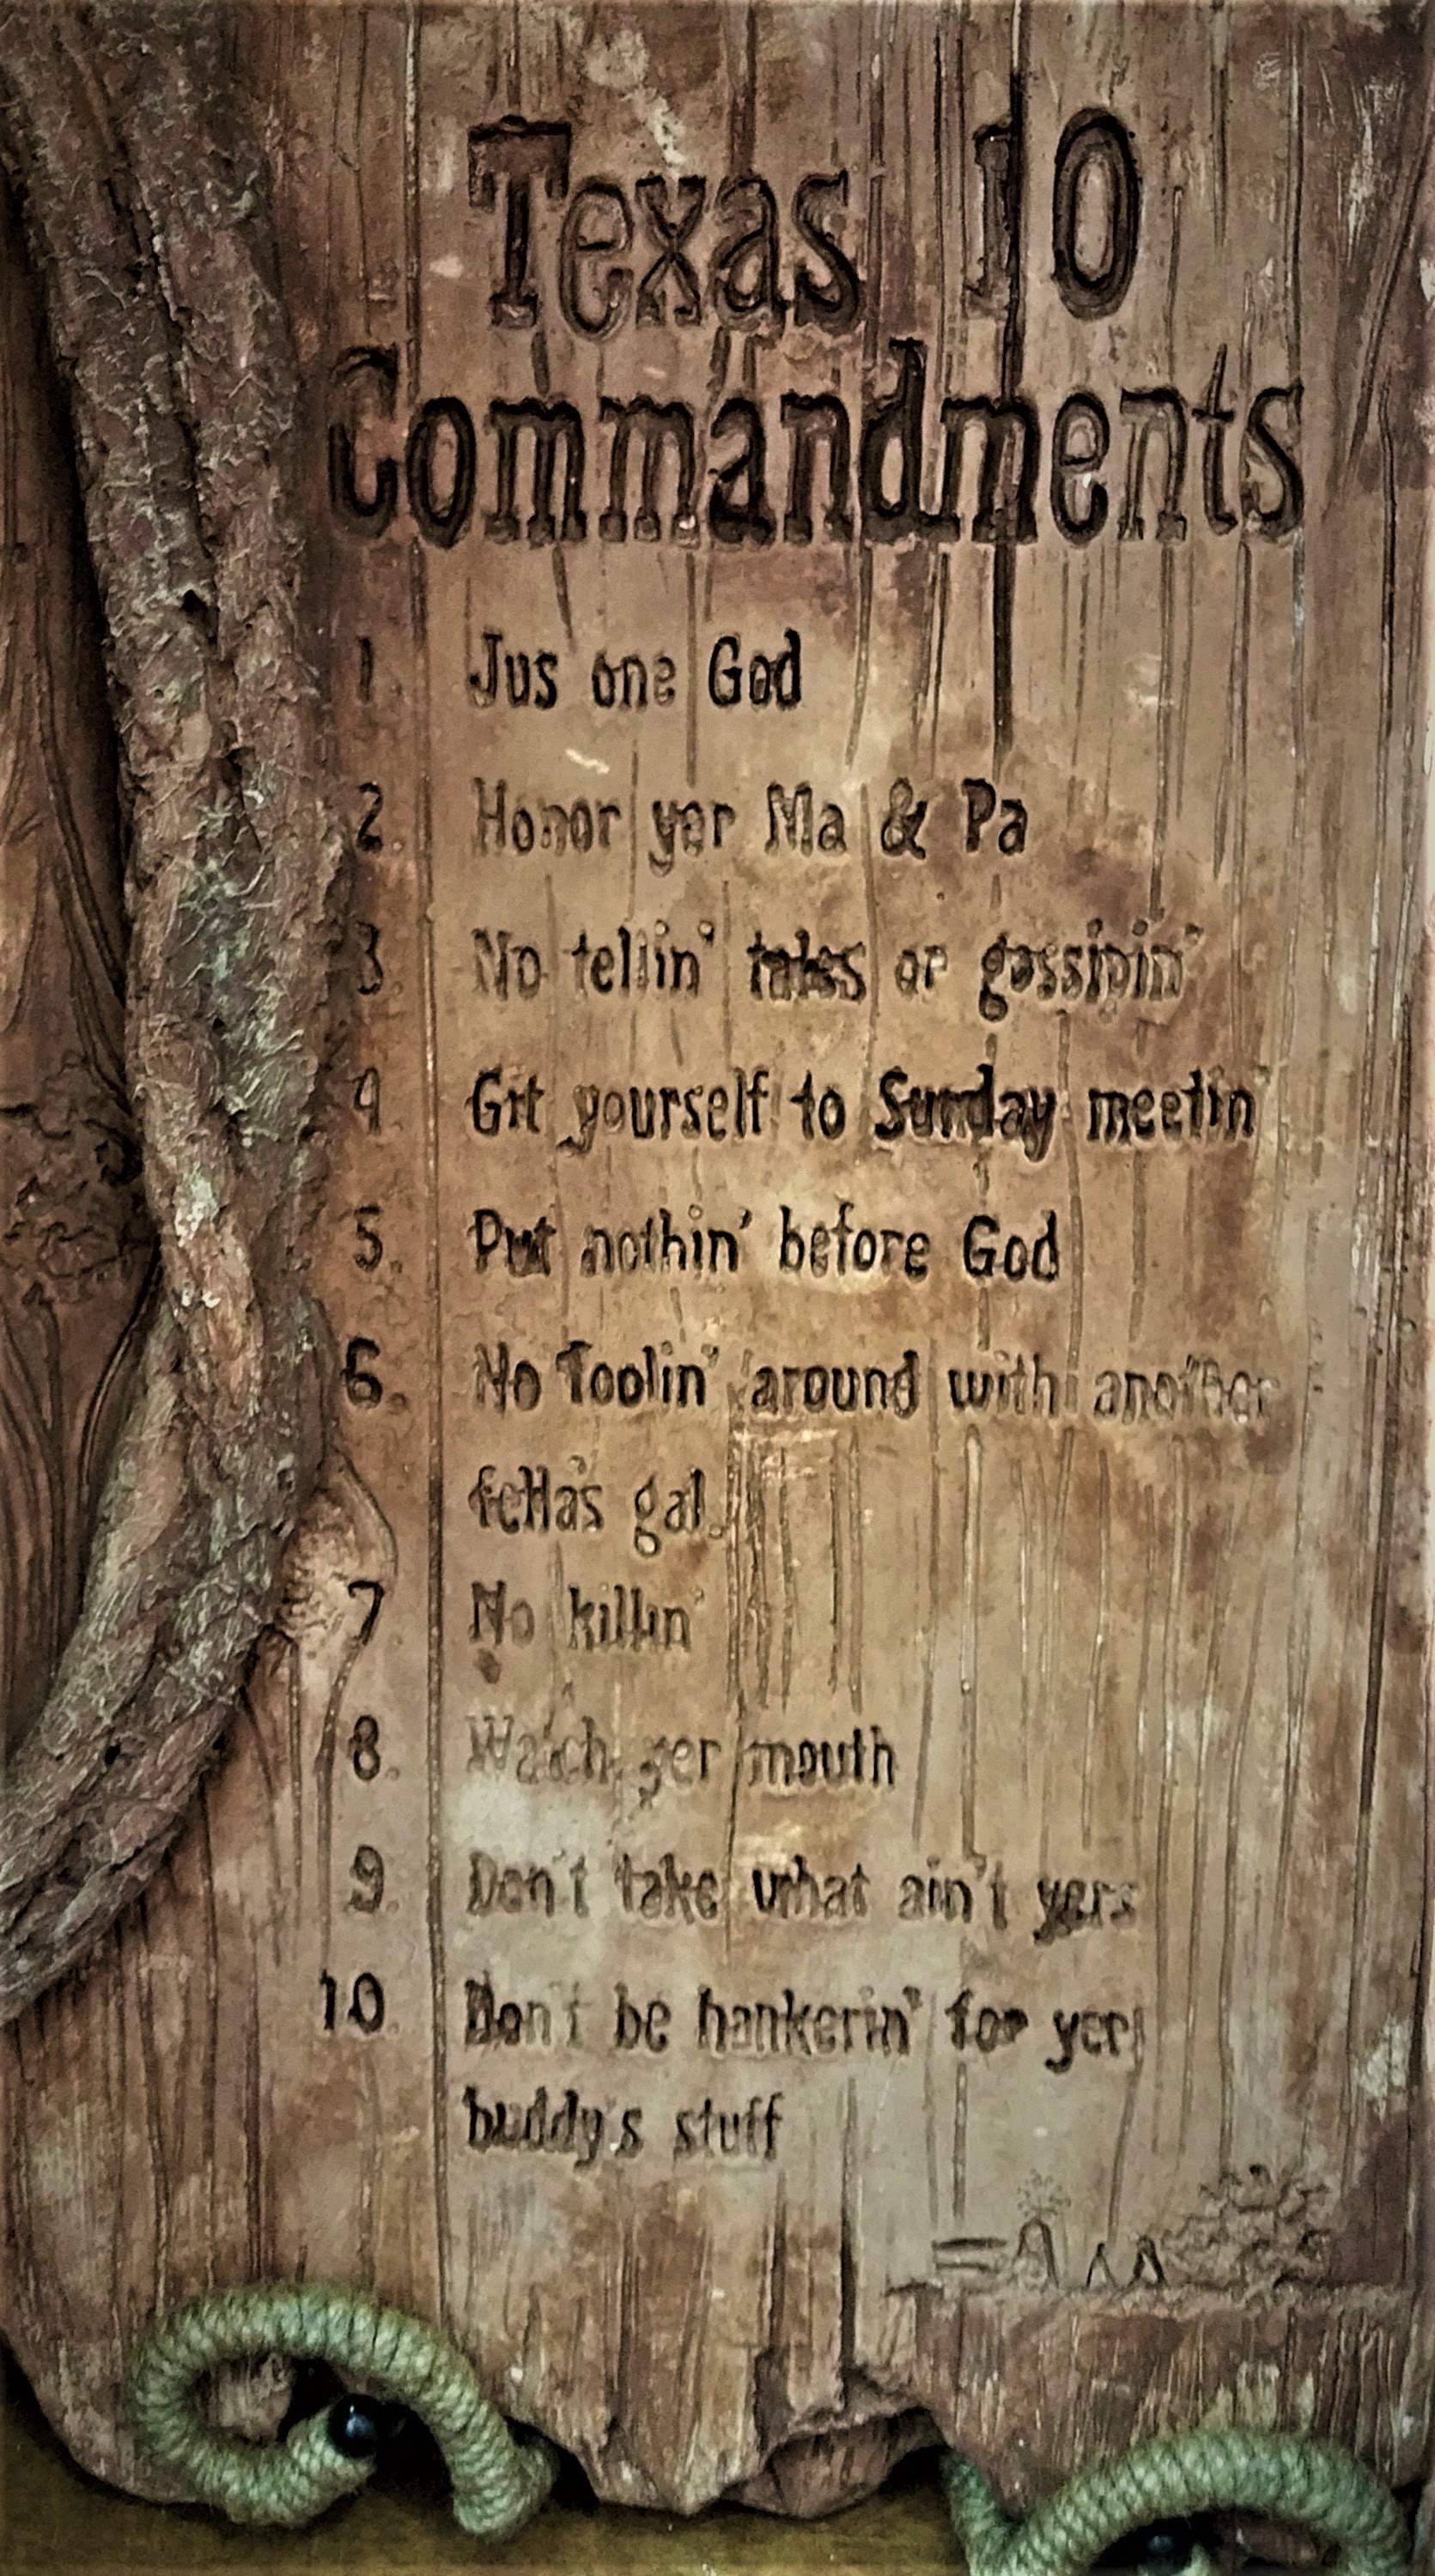 Texas 10
Commandments
1. Jus one God
2. Honor yer Ma & Pa
3. No tellin' tales or gossipin'
4. Git yourself to Sunday meetin'
5. Put nothin' before God
6. No foolin' around with another
fella's gal
7 No killin'
8. Watch yer mouth
9. Don't take what ain't yers
10. Don't be hankerin' for yer
buddy's stuff